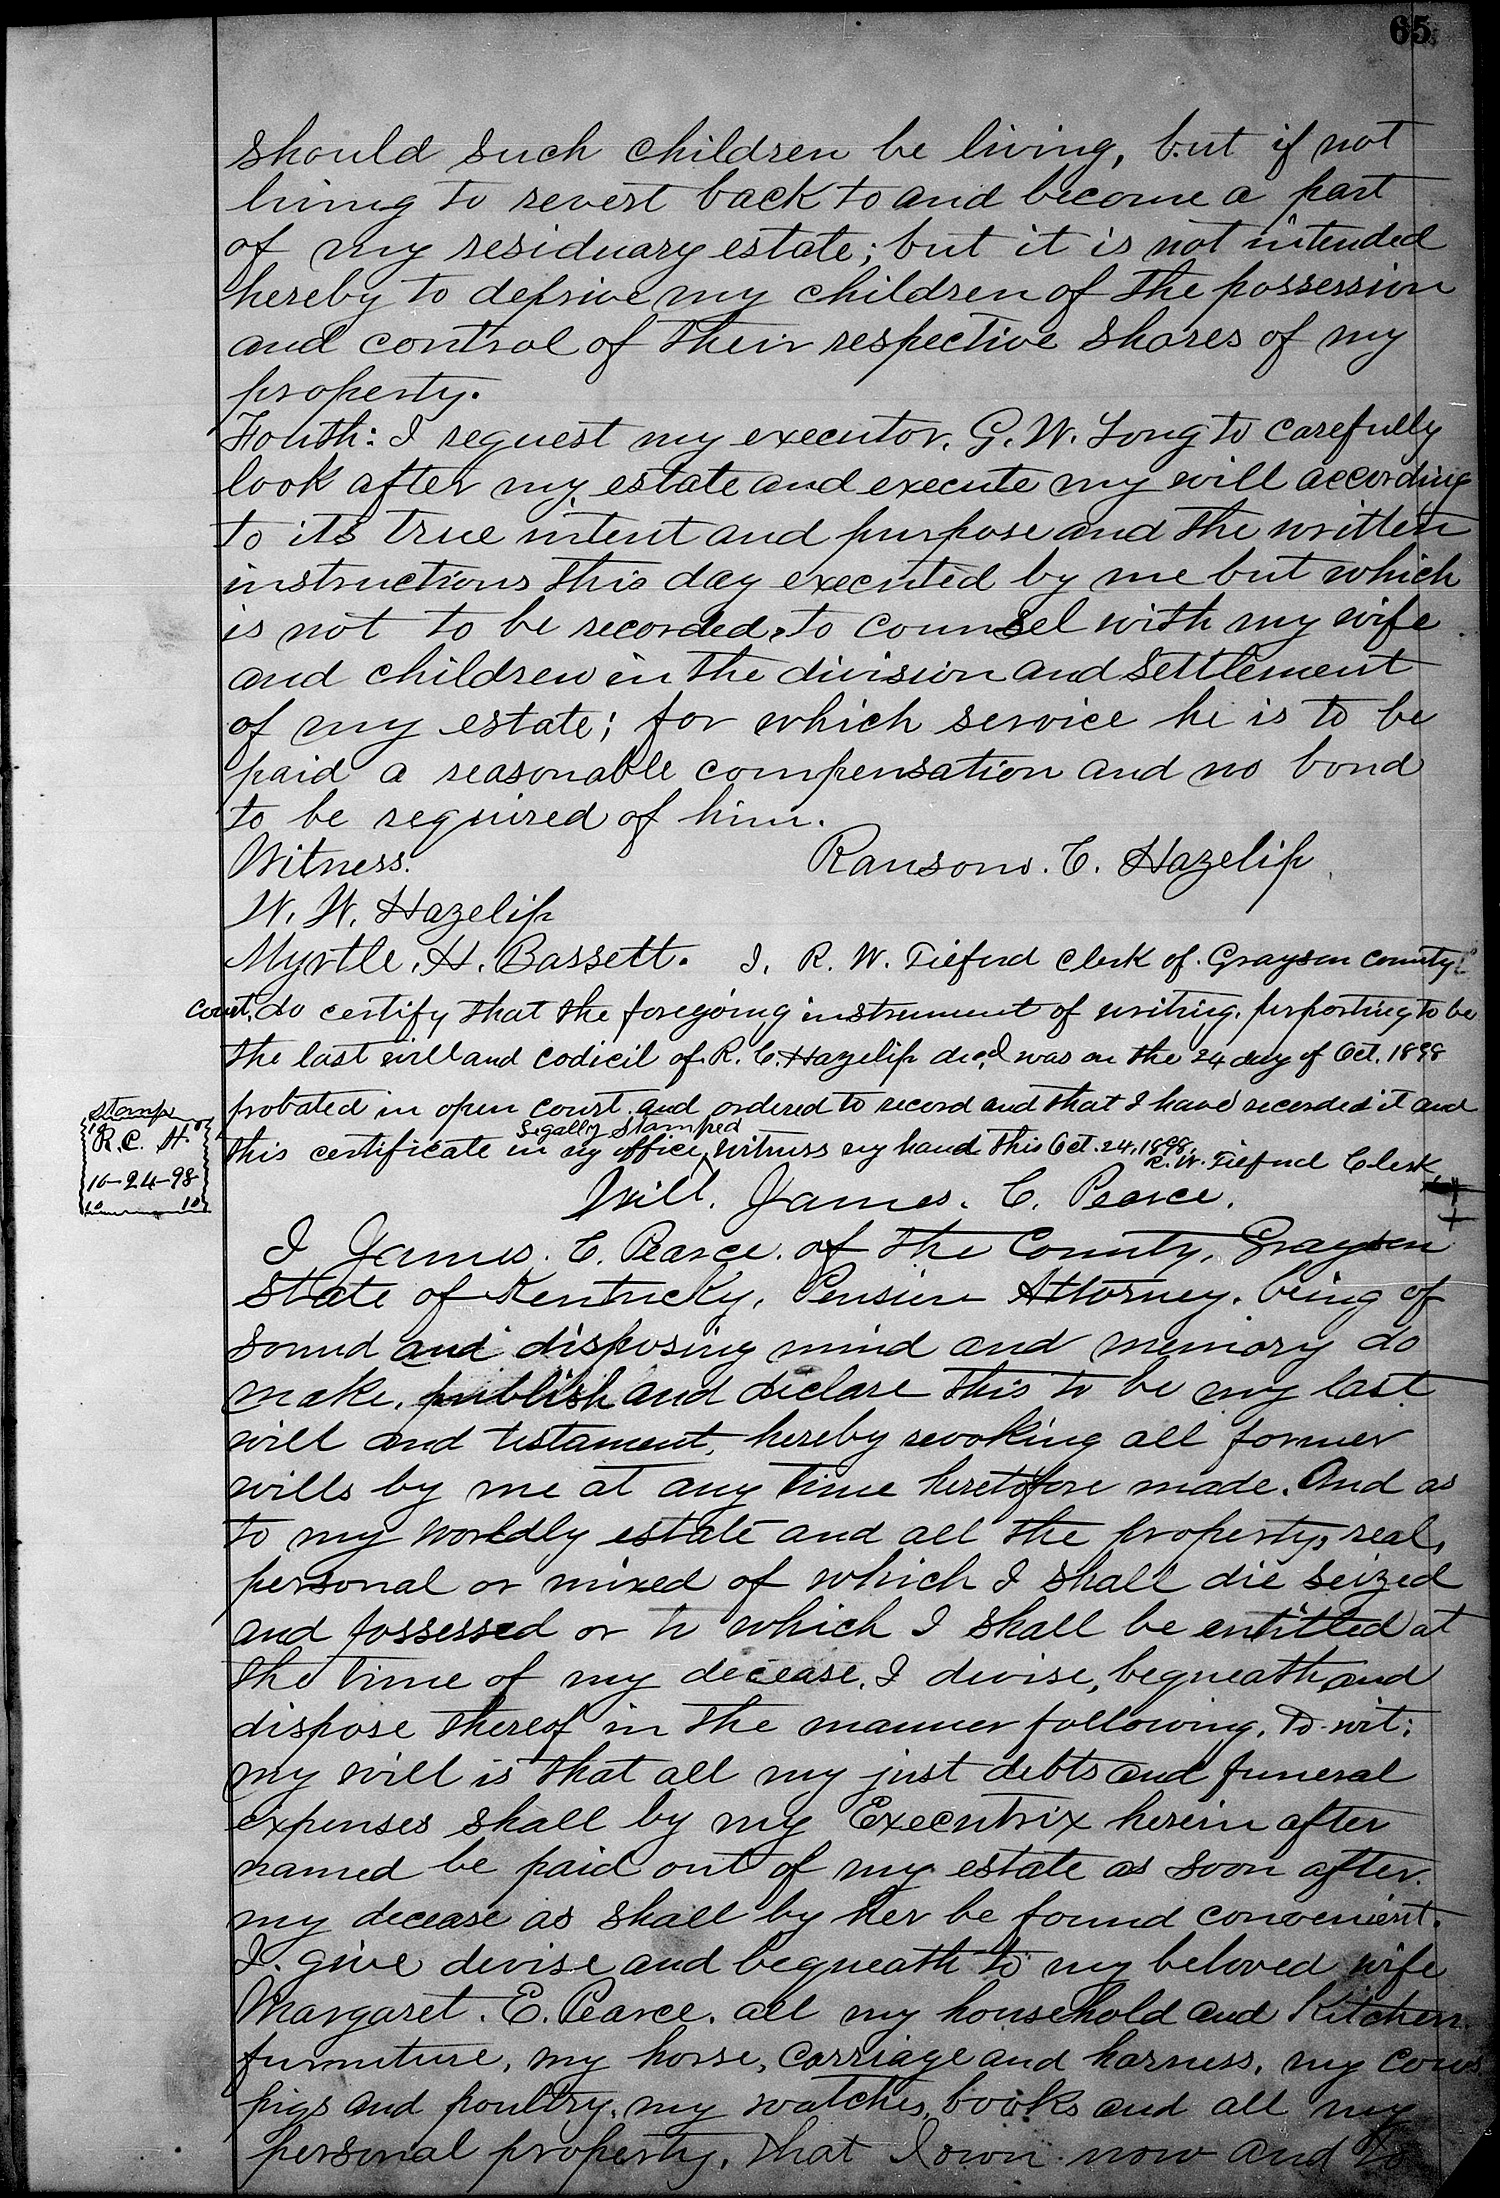 65
should such children be living, but if not
living to revert back to and become a part
of my residuary estate; but it is not intended
hereby to deprive my children of the possession
and control of their respective shares of my
property.
Fouth: I request my executor, G. W. Long to carefully
look after my estate and execute my will according
to its true intent and purpose and the written
instructions this day executed by me but which
is not to be recorded, to counsel with my wife
and children in the division and settlement
of my estate; for which service he is to be
paid a reasonable compensation and no bond
to be required of him.
Witness. Ransom. C. Hazelip
W. W. Hazelip
Myrtle. H. Bassett. I, R. W. Tilford Clerk of Grayson County
Court, do certify that the foregoing instrument of writing, purporting to be
the last will and codicil of R. C. Hazelip dec,d was on the 24 day of Oct. 1898
probated in open court and ordered to record and that I have recorded it and
legally stamped
this certificate in my office, witness my hand this Oct. 24, 1898.
R. W. Tilford Clerk
stamp
10 10
R. C. H.
10-24-98
10 10
Will. James. C. Pearce.
I James. C. Pearce. of the County, Grayson
State of Kentucky, Pension Attorney. being of
sound and disposing mind and memory do
make, publish and declare this to be my last
will and testament, hereby revoking all former
wills by me at any time heretofore made. And as
to my worldly estate and all the property, real,
personal or mixed of which I shall die seized
and possessed or to which I shall be entitled at
the time of my decease, I devise, bequeath and
dispose thereof in the manner following, to-wit:
my will is that all my just debts and funeral
expenses shall by my Executrix herein after
named be paid out of my estate as soon after
my decease as shall by her be found convenient.
I. give devise and bequeath to my beloved wife
Margaret. E. Pearce. all my household and Kitchen
furniture, my horse, carriage and harness, my cows
pigs and poultry, my watches, books and all my
personal property, that I own now and to